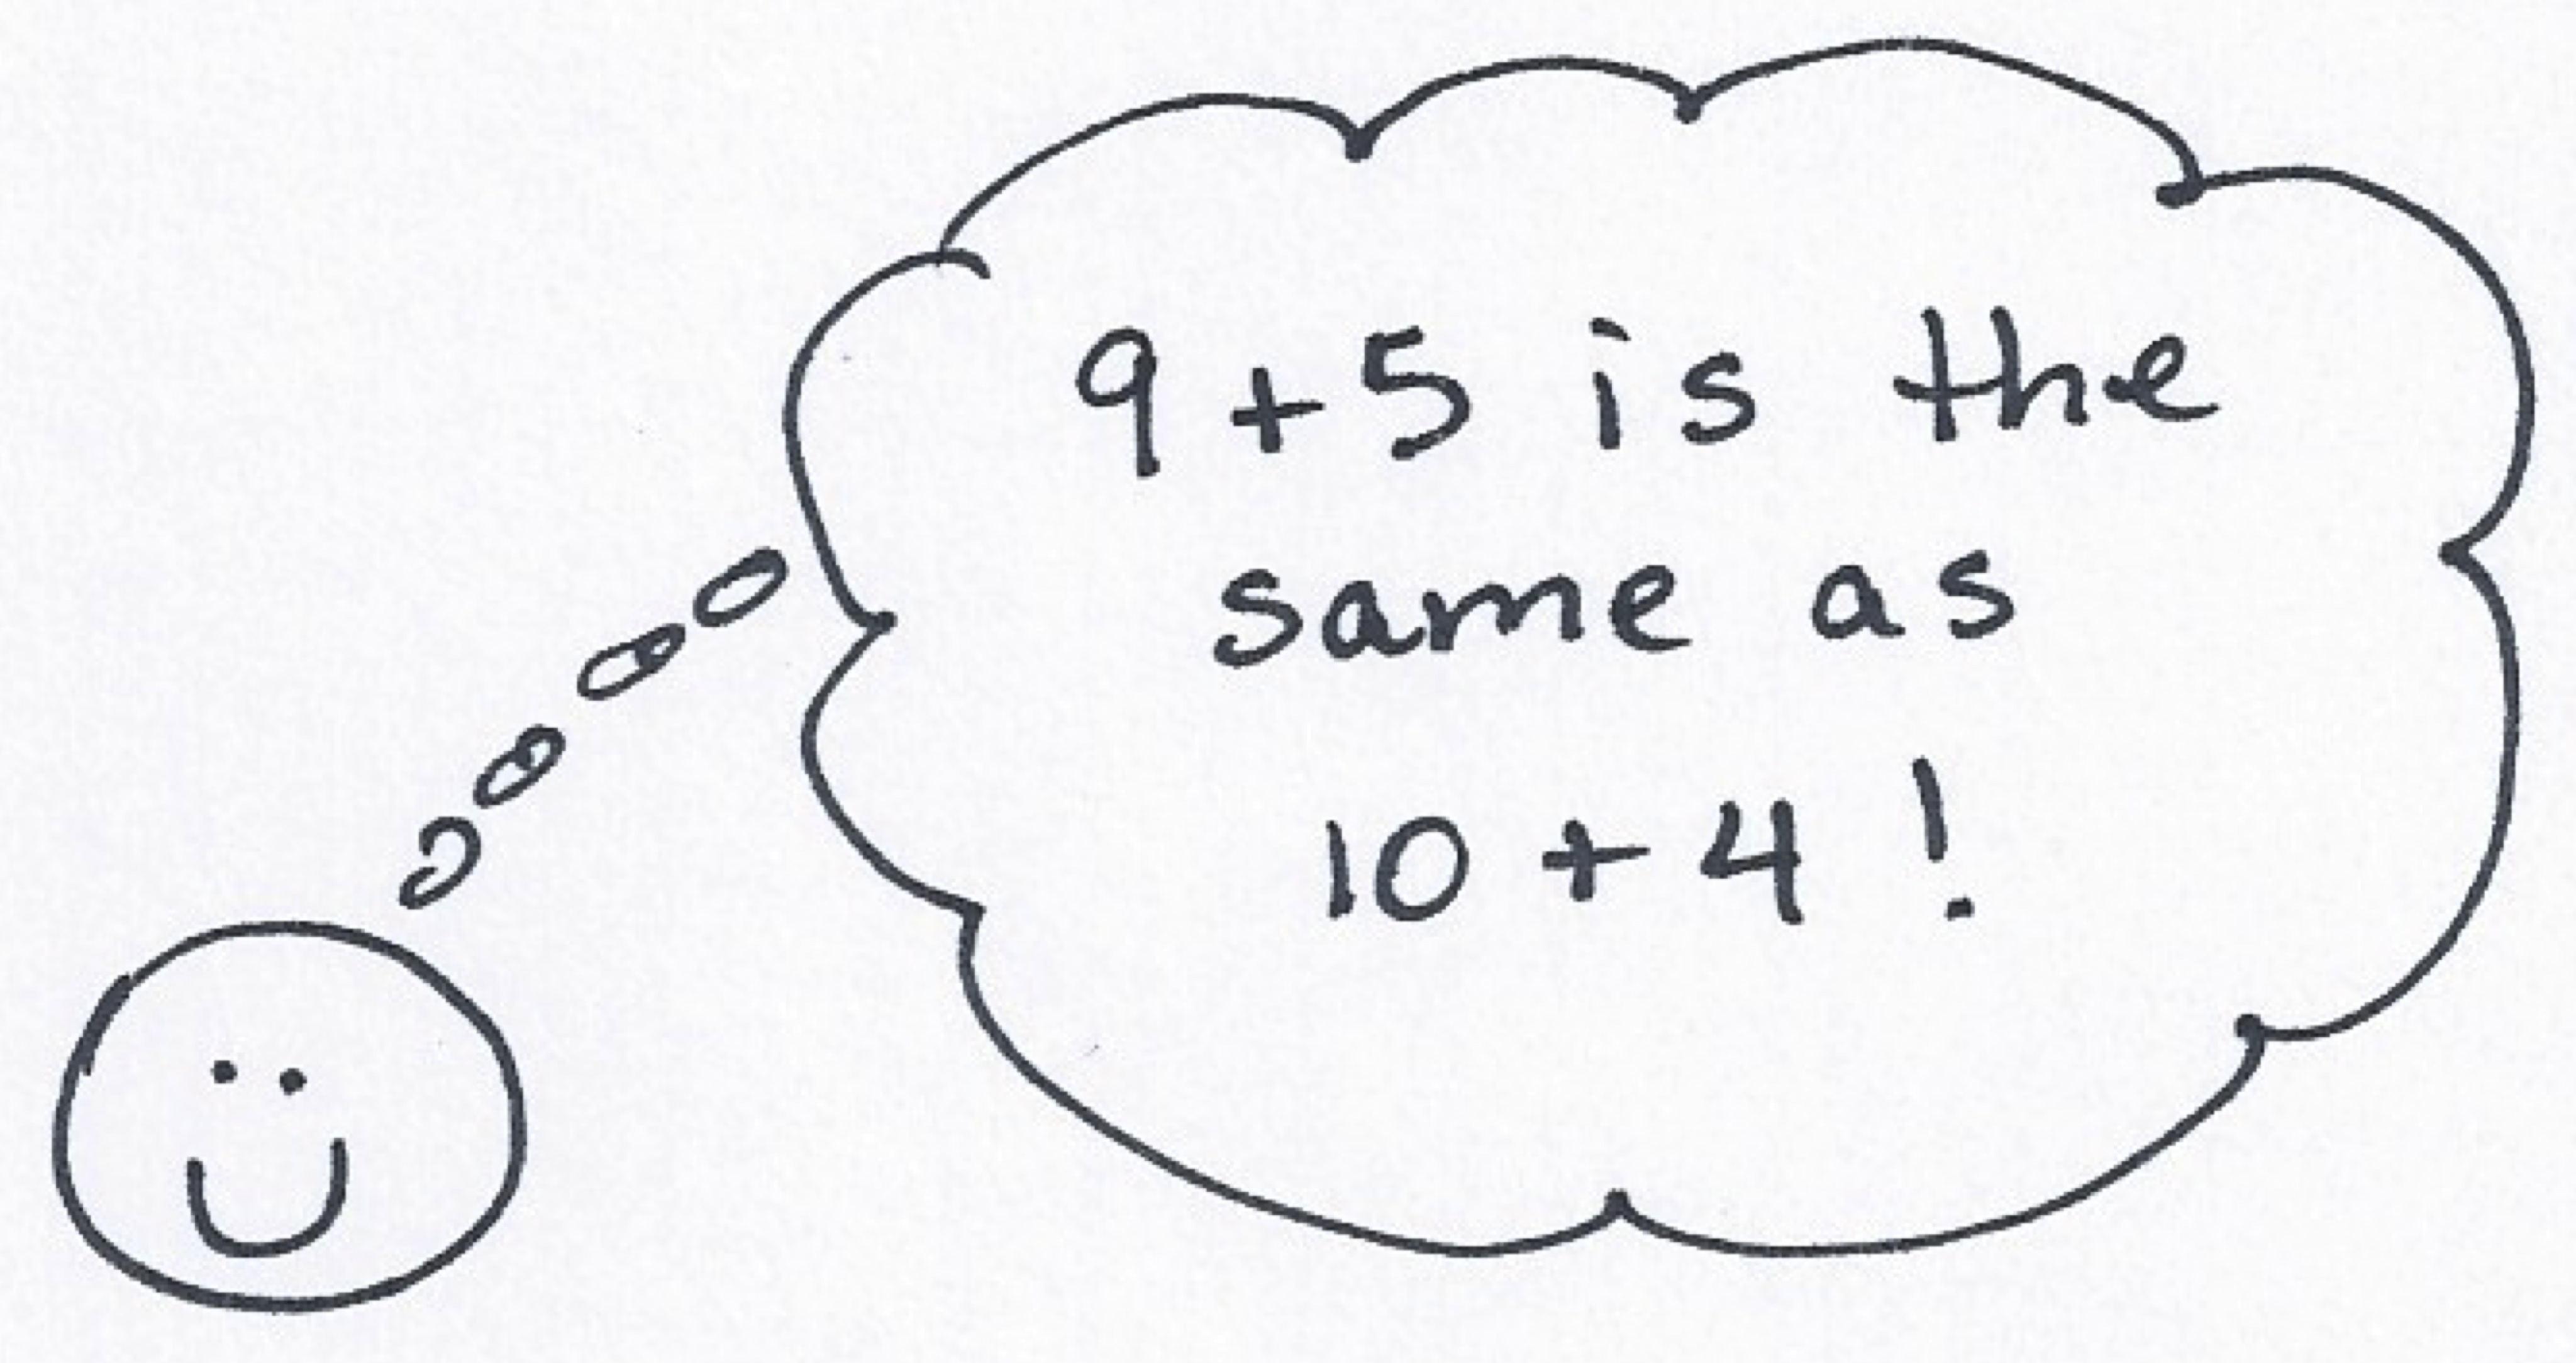 9 + 5 is the
same as
10 + 4 !